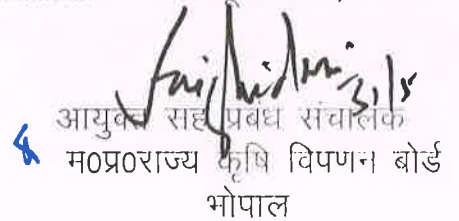 31/5
आयुक्त सह प्रबंध संचालक
म0प्र0राज्य कृषि विपणन बोर्ड
भोपाल